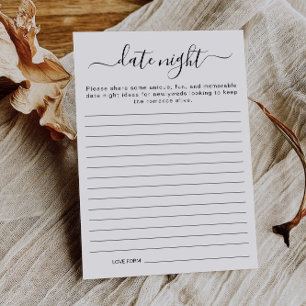 date night
Please share some unique, fun, and memorable
date night ideas for newyweds looking to keep
the romance alive.
LOVE FORM: